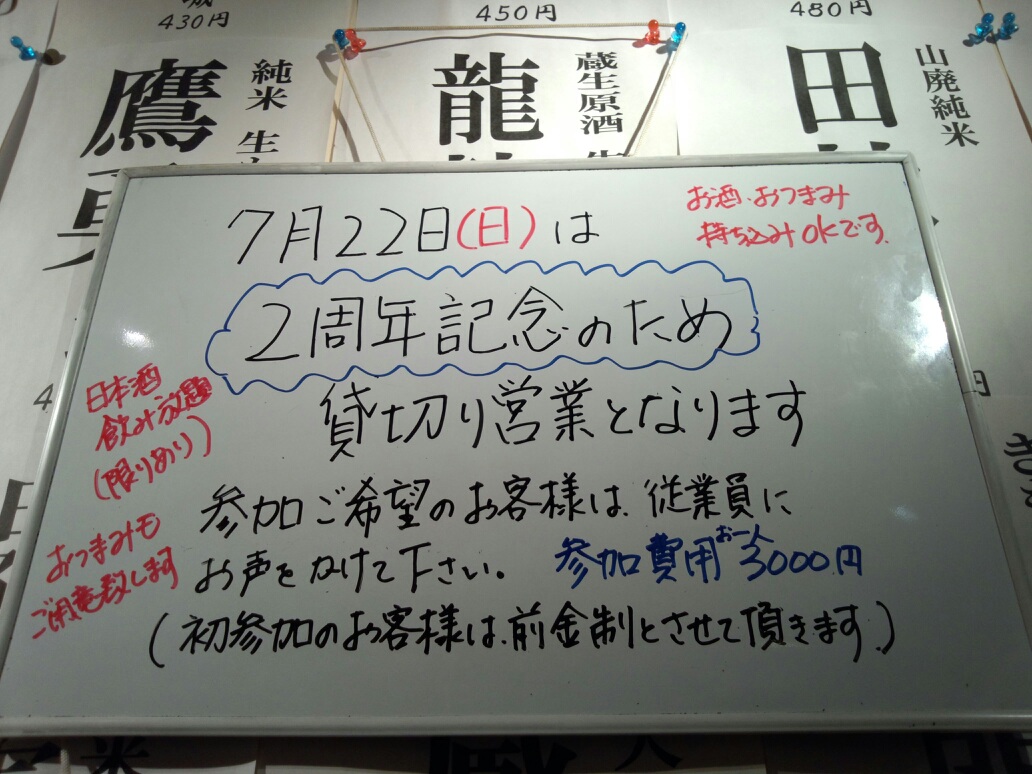 430円
450円
480円
鷹
純米
龍
蔵生原酒
田
山廃純米
7月22日(日)は
お酒、おつまみ
持ち込みOKです。
2周年記念のため
貸切り営業となります
日本酒
飲み放題
(限りあり)
参加ご希望のお客様は、従業員に
お声をかけて下さい。
参加費用お一人3000円
おつまみも
ご用意致します
(初参加のお客様は、前金制とさせて頂きます。)